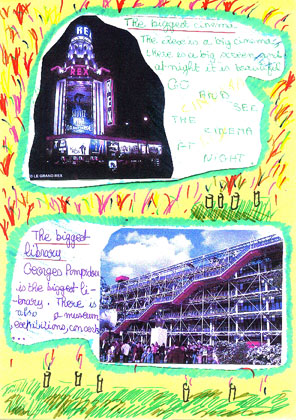 The biggest cinema
The Rex is a big cinema,
there is a big screen and
at night it is beautiful
GO
AND
SEE
THE
CINEMA
AT
NIGHT
RE
REX
REX
LE GRAND REX
The biggest
library
Georges Pompidou
is the biggest li-
brary. There is
also a museum,
exhibitions,
...